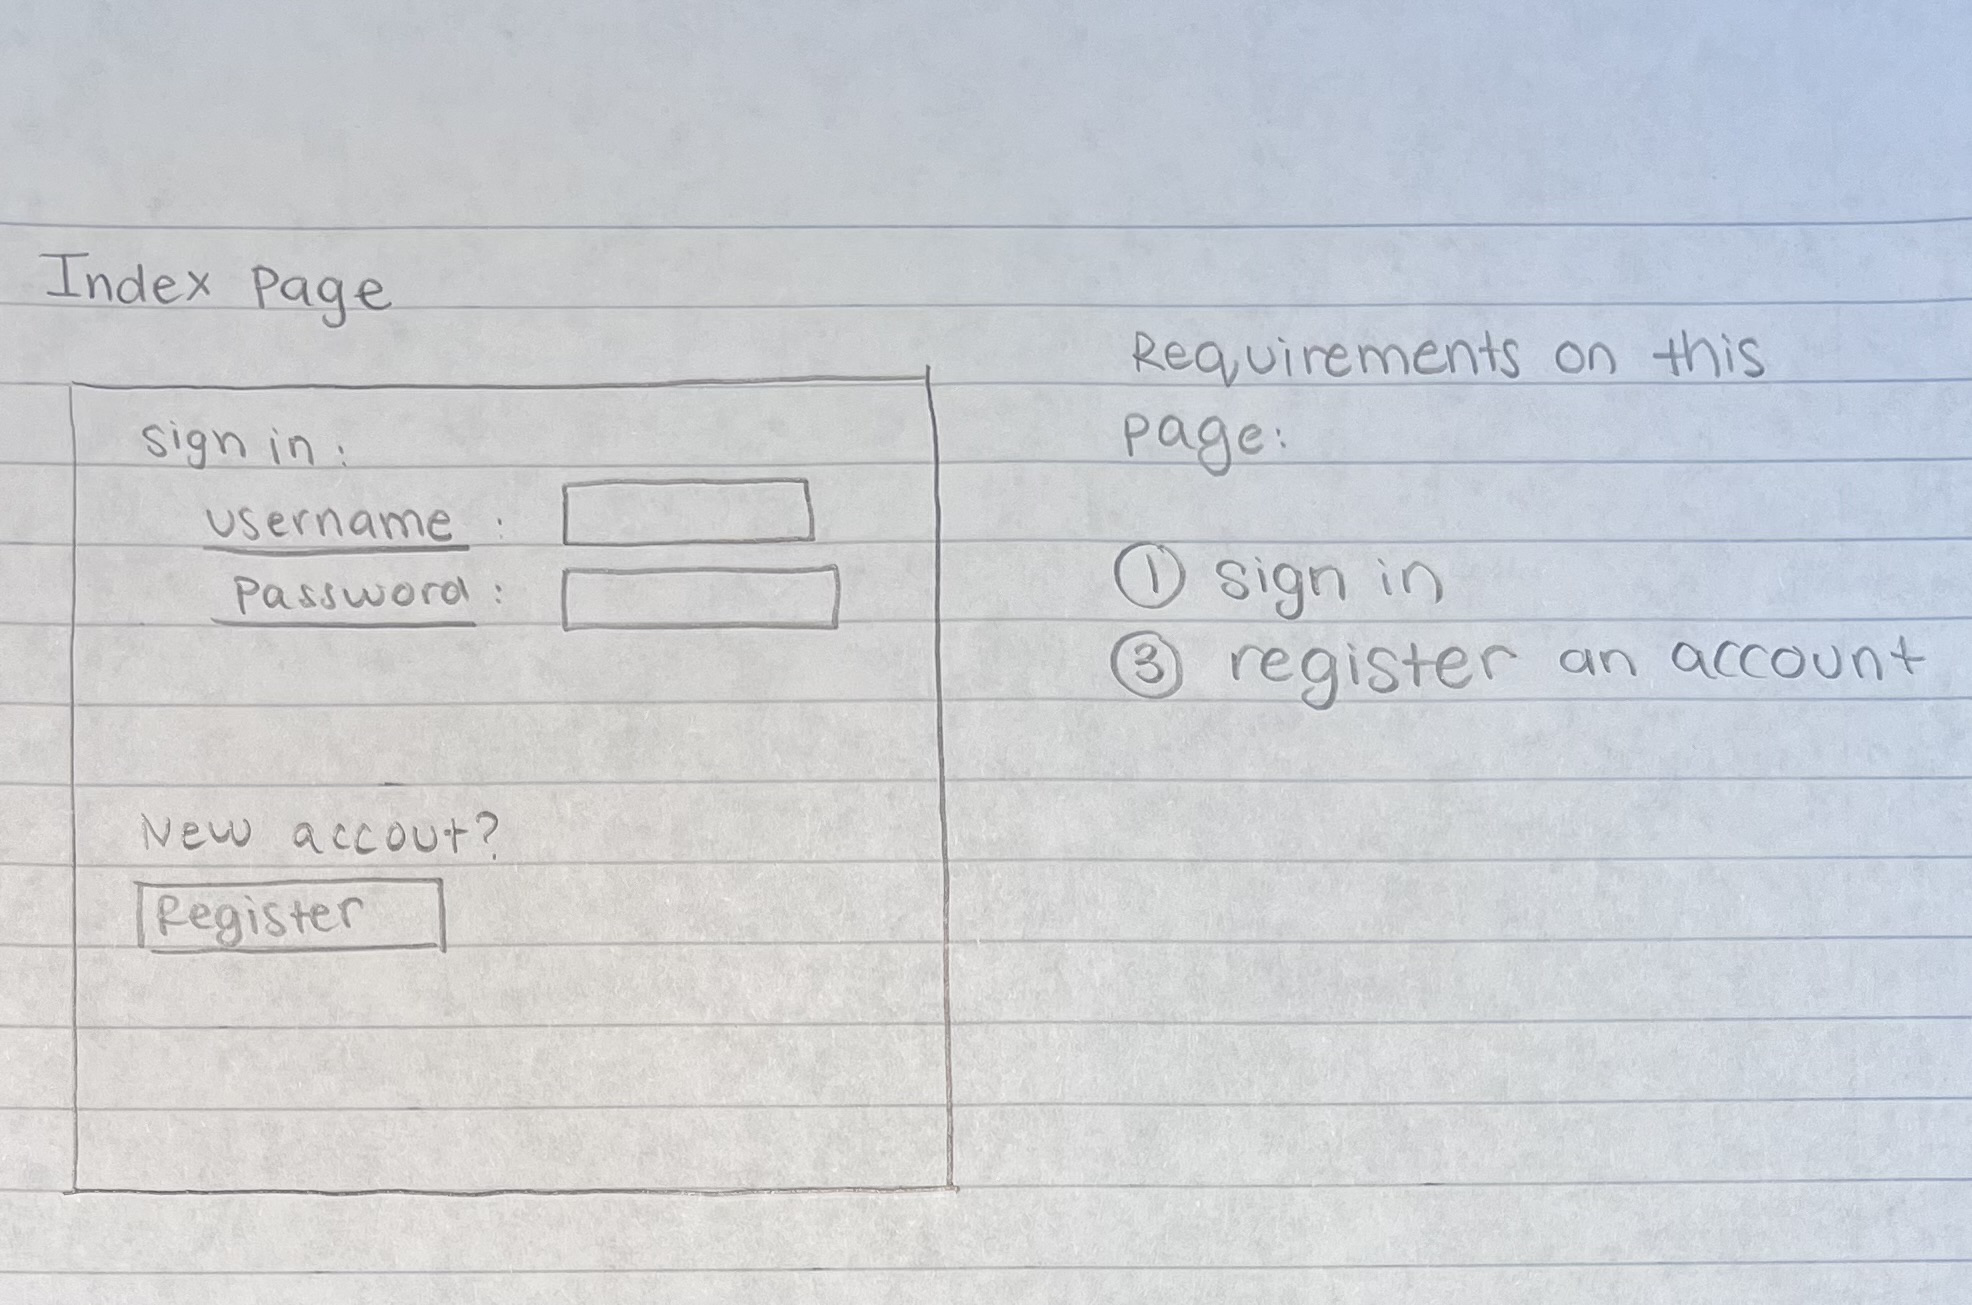 Index Page
sign in:
username :
Password :
New accout?
Register
Requirements on this
page:
① sign in
③ register an account